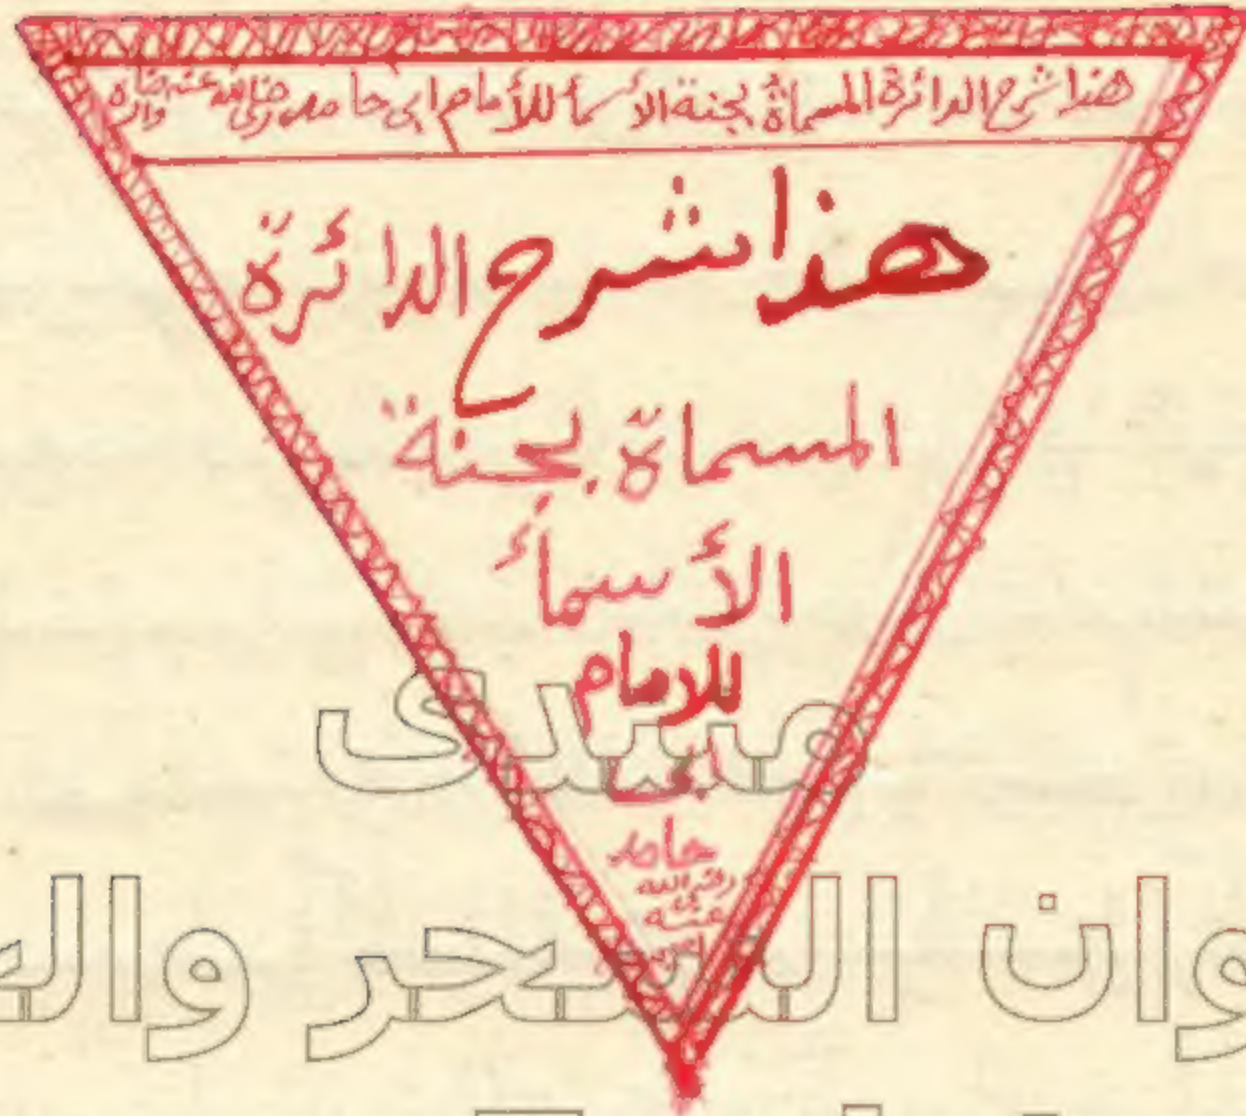 هذا شرح الدائرة المسماة بجنة الاسمأ للأمام ابي حامد رضي الله عنه
هذا شرح الدائرة
المسماة بجنة
الأسمأ
للامام
ابى
حامد
رضي الله
عنه
منتدى
وان السحر وال